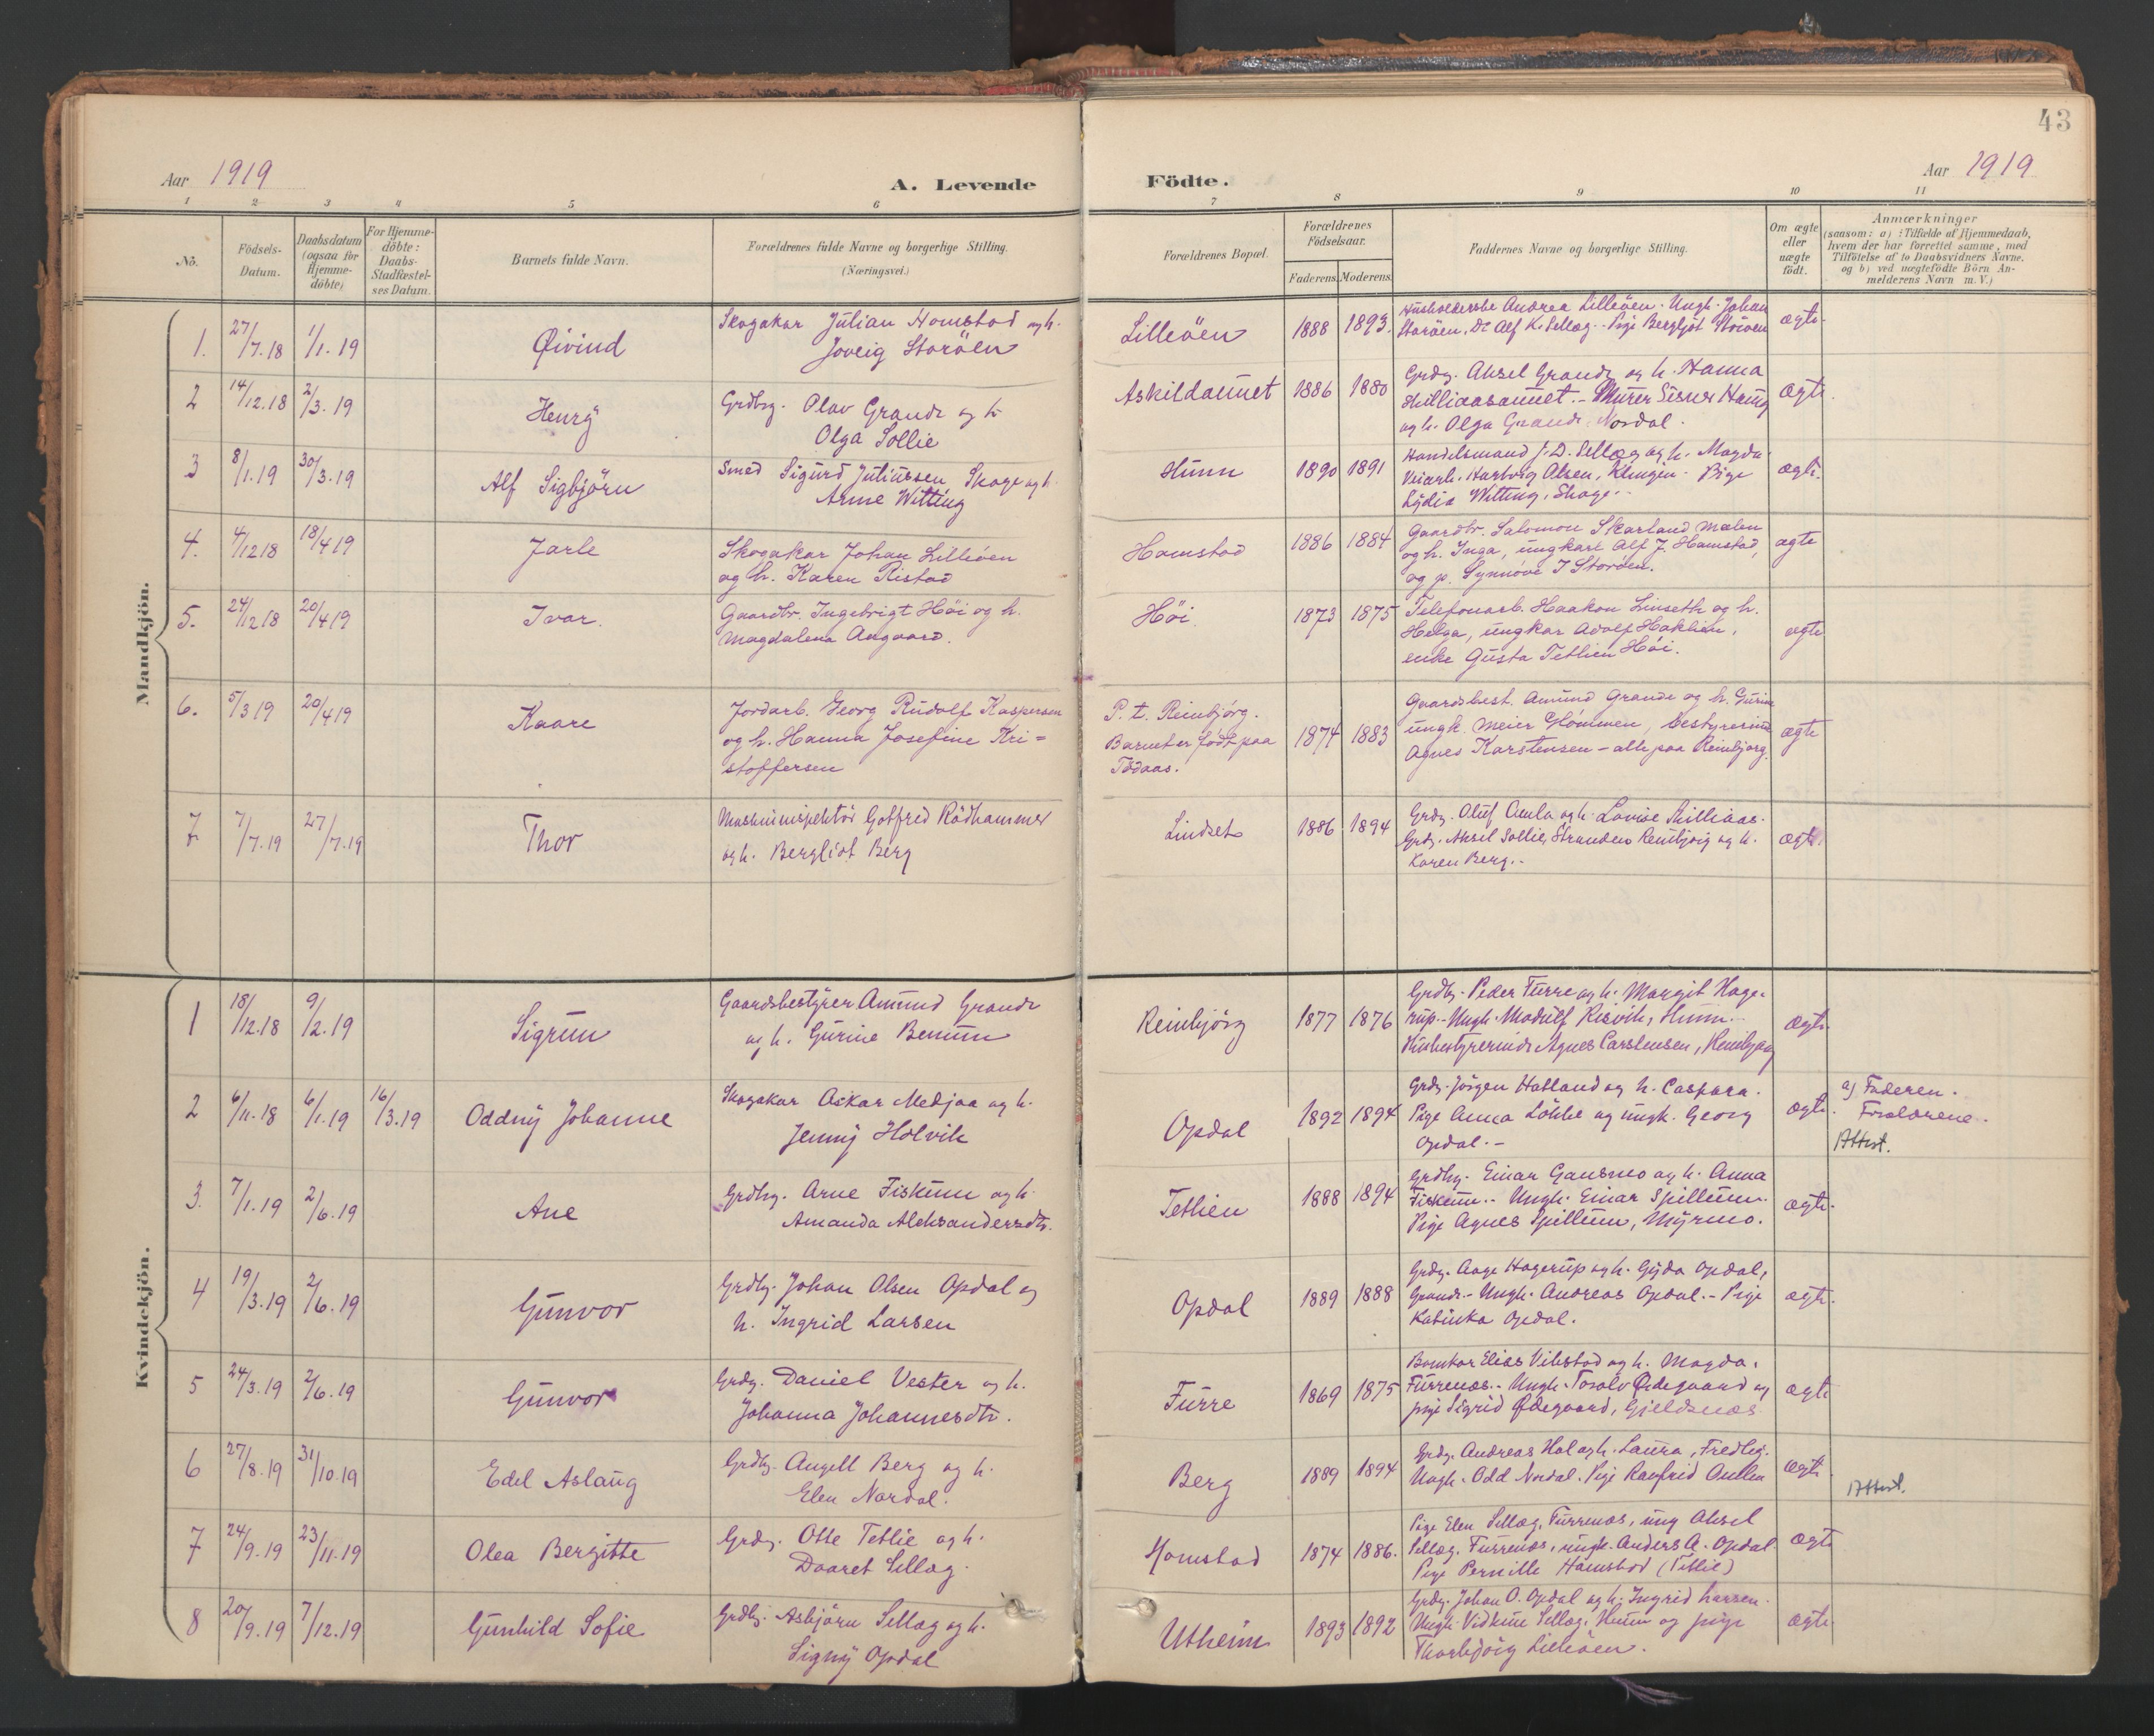 43
Aar 1919
A. Levende
Födte.
Aar 1919
1 2 3 4 5 6 7 8 9 10 11
No.
Födsels-
Datum.
Daabsdatum
(ogsaa for
Hjemme-
döbte)
For Hjemme-
döbte:
Daabs-
Stadfæstel-
ses Datum.
Barnets fulde Navn.
Forældrenes fulde Navne og borgerlige Stilling.
(Næringsvei.)
Forældrenes Bopæl.
Forældrenes
Födselsaar.
Faderens. Moderens.
Faddernes Navne og borgerlige Stilling.
Om ægte
eller
uægte
födt.
Anmærkninger
(saasom: a) i Tilfælde af Hjemmedaab,
hvem der har forrettet samme, med
Tilföielse af to Daabsvidners Navne,
og b) ved uægtefödte Börn An-
melderens Navn m.V.)
Mandkjön.
1. 27/7.18 1/1.19 Øivind
Skogakar Julian Homstad og h.
Joveig Storöen
Lilleöen 1888 1893.
Husholderske Andrea Lilleöen. Ungk. Johan
Storöen. Do Alf K. Sellæg. Pige Bergljot Storöen
ægte
2 14/12.18 2/3.19 Henry
Grdbr. Olav Grande og h.
Olga Sollie
Askildaunet 1886 1880
Grdbr. Aksel Grande og h. Hanna
Skilliaasaunet. Murer Haug
og h. Olga Grande Nordal.
ægte
3 8/1.19 30/3.19 Alf Sigbjörn
Smed Sigurd Juliussen Skage og h.
Anne Witting
Hunn 1890 1891
Handelsmand J. D. Sellæg og h. Magda
Veiarb. Hartvig Olsen, Klingen. Pige
Lydia Witting, Skage.
ægte.
4. 4/12 18 18/4 19 Jarle
Skogakar Johan Lilleöen
og h. Karen Ristad
Homstad 1886 1884
Gaardbr. Salomon Skarland Mælen
og h. Inga, ungkarl Alf J. Homstad,
og p. Synnöve J Storöen.
ægte
5. 24/12 18 20/4 19 Ivar.
Gaardbr. Ingebrigt Höi og h.
Magdalena Aagaard.
Höi. 1873 1875
Telefonarb. Haakon Linseth og h.
Helga, ungkar Adolf Haklien,
enke Gusta Tetlien Höi.
ægte
6. 5/3 19 20/4 19 Kaare
Jordarb. Georg Rudolf Kaspersen
og h. Hanna Josefine Kri=
stoffersen
P. t. Reinbjörg.
Barnet er födt paa
Tödaas.
1874 1883
Gaardsbest. Amund Grande og h. Gurine
ungk. Meier Glömmen, bestyrerinde
Agnes Karstensen – alle paa Reinbjörg.
ægte
7 7/7.19 27/7.19 Thor
Maskininspektör Gotfred Rödhammer
og h. Bergliot Berg
Lindset 1886 1894
Grdbr. Oluf Amla og h. Lovise Skilliaas.
Grdbr. Aksel Sollie, Reinbjörg og h.
Karen Berg.
ægte.
Kvindekjön.
1 18/12.18 9/2.19 Sigrun
Gaardsbestyrer Amund Grande
og h. Gurine Benum
Reinbjörg 1877 1876
Grdbr. Peder Furre og h. Margit Hage-
rup. Ungk. Modulf Risvik, Hunn.
Husbestyrerinde Agnes Carstensen, Reinbjörg
ægte
2 6/11.18 6/1.19 16/3.19 Oddny Johanne
Skogakar Oskar Medjaa og h.
Jenny Holvik
Opdal 1892 1894
Grdbr. Jörgen Hatland og h. Caspara.
Pige Anna Lökke og ungk. Georg
Opdal.
ægte.
a) Faderen.
Forældrene.
Attest.
3. 7/1.19 2/6.19 Ane
Grdbr. Arne Fiskum og h.
Amanda Aleksandersdtr.
Tetlien 1888 1894
Grdbr. Einar Gansmo og h. Anna
Fiskum. Ungk. Einar Spillum.
Pige Agnes Spillum, Myrmo.
ægte.
4 19/3.19 2/6.19 Gunvor
Grdbr. Johan Olsen Opdal og
h. Ingrid Larsen
Opdal 1889 1888
Grdbr. Aage Hagerup og h. Gyda Opdal,
Grande. Ungk. Andreas Opdal. Pige
Katinka Opdal.
ægte.
5 24/3.19 2/6.19 Gunvor
Grdbr. Daniel Vester og h.
Johanna Johannesdtr.
Furre 1869 1875
Elias Vibstad og h. Magda,
Furrenæs. Ungk. Torolv Ødegaard og
pige Sigrid Ødegaard, Gjeldsnæs.
ægte
6 27/8.19 31/10.19 Edel Aslaug
Grdbr. Angell Berg og h.
Elen Nordal.
Berg 1889 1894
Grdbr. Andreas Hol og h. Laura, Fredlig.
Ungk. Odd Nordal. Pige Ranfrid Amlien
ægte.
Attest.
7 24/9.19 23/11.19 Olea Bergitte
Grdbr. Otte Tetlie og h.
Daaret Sellæg.
Homstad 1874 1886.
Pige Elen Sellæg, Furrenæs, ung Aksel
Sellæg, Furrenæs, ungk. Anders A. Opdal
Pige Pernille Hamstad (Tetlie)
ægte
8 20/9.19 7/12.19 Gunhild Sofie
Grdbr. Asbjörn Sellæg og h.
Signy Opdal
Utheim 1893 1892
Grdbr. Johan O. Opdal og h. Ingrid Larsen.
Ungk. Vidkun Sellæg, Hunn og pige
Thorbjörg Lilleöen.
ægte.